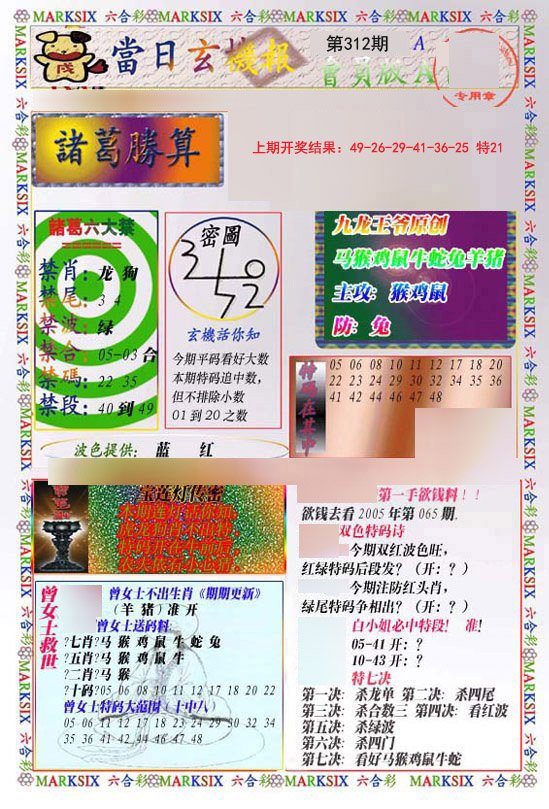 MARKSIX 六合彩 MARKSIX 六合彩 MARKSIX 六合彩 MARKSIX 六合彩
當日玄機報
第312期
A
會員版A
专用章
諸葛勝算
上期开奖结果：49-26-29-41-36-25 特21
諸葛六大禁
禁肖：龙 狗
禁尾：3 4
禁波：绿
禁合：05-03 合
禁碼：22 35
禁段：40 到 49
密圖
玄機話你知
今期平码看好大数
本期特码追中数，
但不排除小数
01 到 20 之数
九龙王爷原创
马猴鸡鼠牛蛇兔羊猪
主攻：猴鸡鼠
防：兔
特码在其中
05 06 08 10 11 12 17 18 20
22 23 24 29 30 32 34 35 36
41 42 44 46 47 48
波色提供： 蓝 红
宝莲灯传密
第一手欲钱料！！
欲钱去看 2005 年第 065 期.
双色特码诗
今期双红波色旺，
红绿特码后段发？（开：？）
今期注防红头肖，
绿尾特码争相出？（开：？）
白小姐必中特段！ 准!
05-41 开：？
10-43 开：？
特七决
第一决：杀龙单 第二决：杀四尾
第三决：杀合数三 第四决：看红波
第五决：杀绿波
第六决：杀四门
第七决：看好马猴鸡鼠牛蛇
曾女士救世
曾女士不出生肖《期期更新》
（羊 猪）准 开
曾女士送码料:
?七肖?马 猴 鸡 鼠 牛 蛇 兔
?五肖?马 猴 鸡 鼠 牛
?二肖?马 猴
?十码?05 06 08 10 11 12 17 18 20 22
曾女士特码大范围（十中八）
05 06 11 12 17 18 23 24 29 30 32 34
35 36 41 42 44 46 47 48
MARKSIX 六合彩 MARKSIX 六合彩 MARKSIX 六合彩 MARKSIX 六合彩